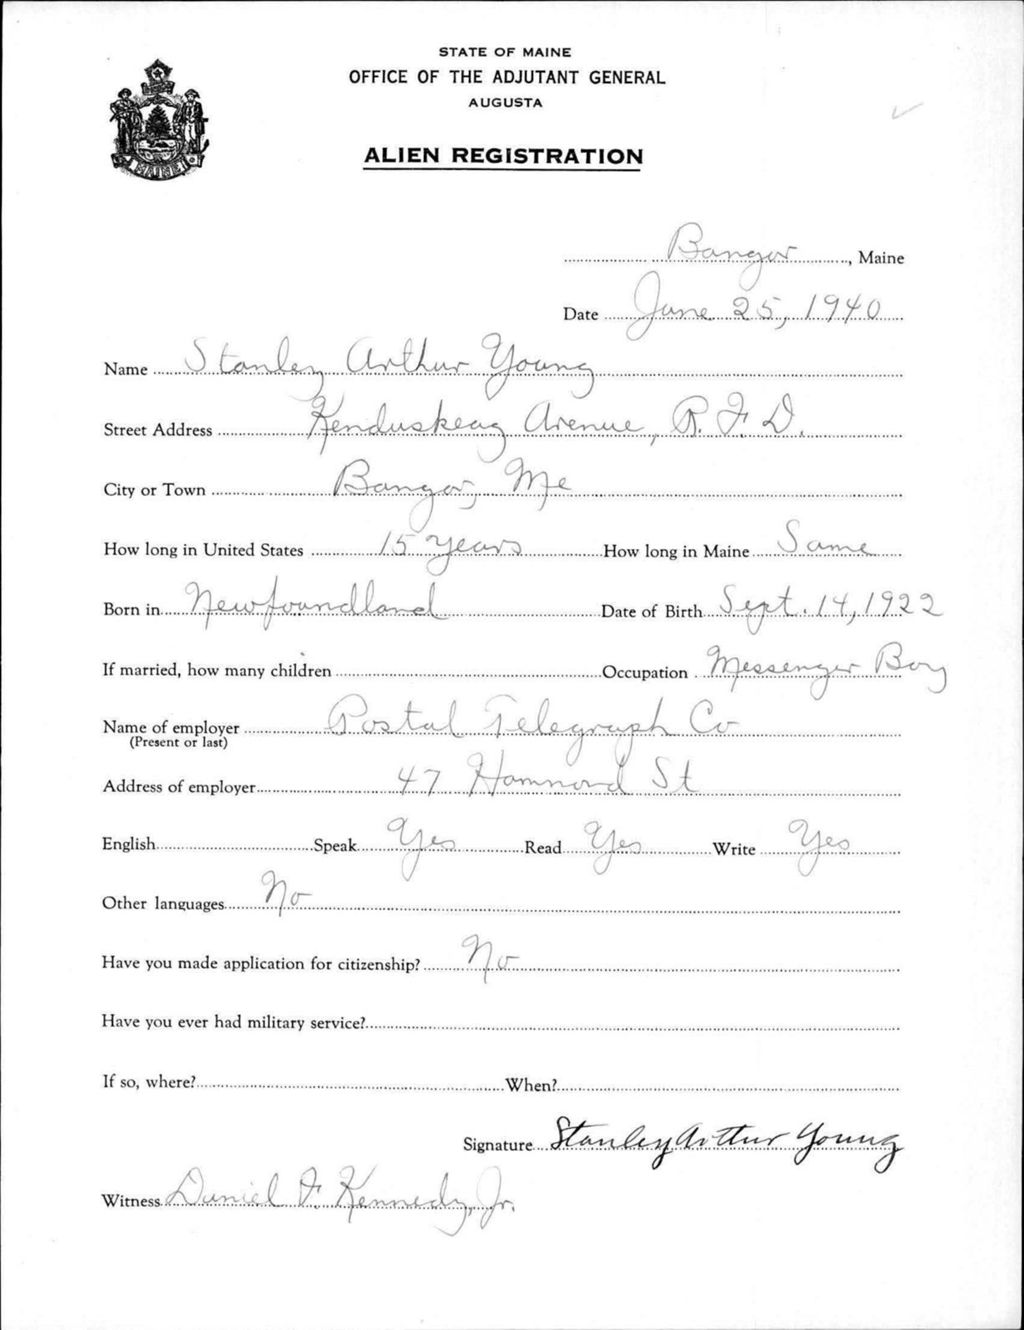 STATE OF MAINE
OFFICE OF THE ADJUTANT GENERAL
AUGUSTA
ALIEN REGISTRATION
MAINE
Bangor, Maine
Date June 25, 1940
Name Stanley Arthur Young
Street Address Kenduskeag Avenue, R. F. D.
City or Town Bangor, Me
How long in United States 15 years How long in Maine Same
Born in Newfoundland Date of Birth Sept. 14, 1922
If married, how many children Occupation Messenger Boy
Name of employer Postal Telegraph Co
(Present or last)
Address of employer 47 Hammond St
English Speak Yes Read Yes Write Yes
Other languages No
Have you made application for citizenship? No
Have you ever had military service?
If so, where? When?
Signature Stanley Arthur Young
Witness Daniel F. Kennedy, Jr.